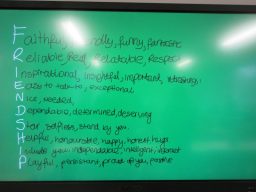 Faithful, friendly, funny, fantastic
Reliable, Real, Relatable, Respect
Inspirational, insightful, important, interesting
Easy to tolerate, exceptional
Nice, needed,
Dependable, determined, deserving
Star, selfless, stand by you.
Helpful, honourable, happy, honest, hugs
Include you, independable, intelligent, interest
Playful, persistant, proud of you, positive